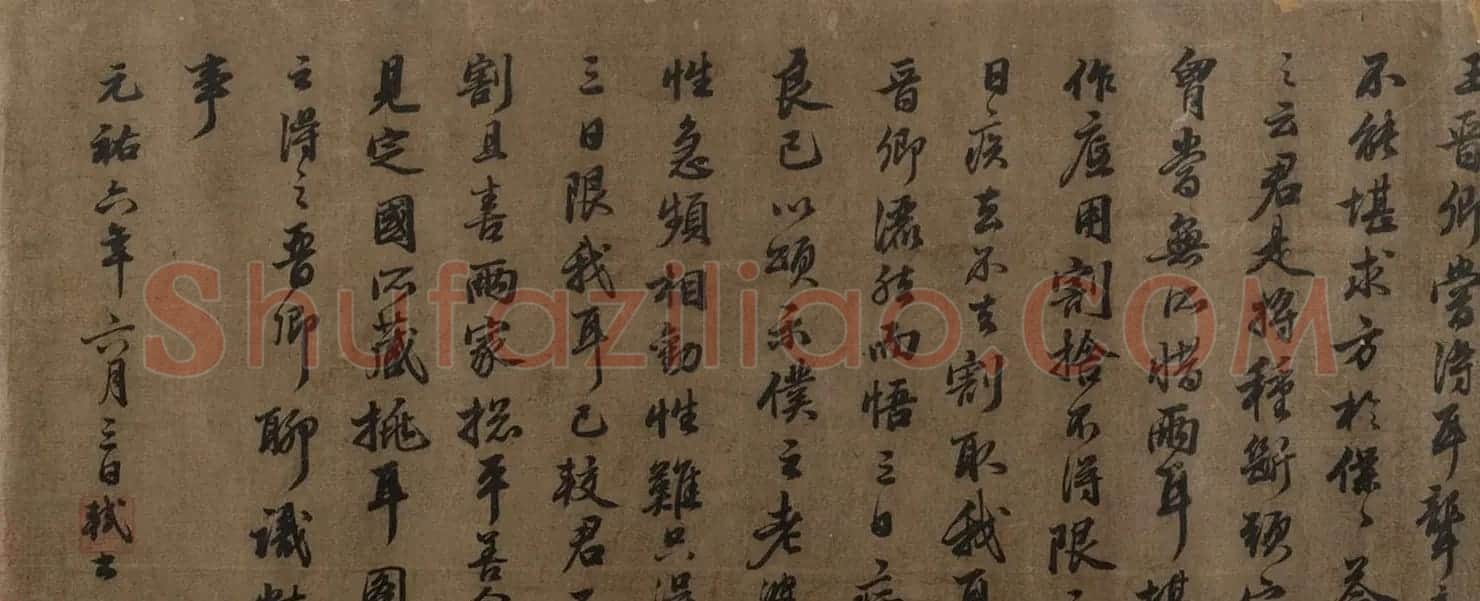 王晉卿嘗得耳聾
不能堪求方於僕〻荅
之云君是將種斷頭穴
胷當無所惜兩耳堪
作底用割捨不得限
日疾去不去割取我耳
晉卿灑然而悟三日病
良已以頌示僕云老婆
性急頻相勸性難只得
三日限我耳已較君不
割且喜兩家揔平善今
見定國所藏挑耳圖
云得之晉卿聊識
事
元祐六年六月三日軾書
Shufaziliao.COM